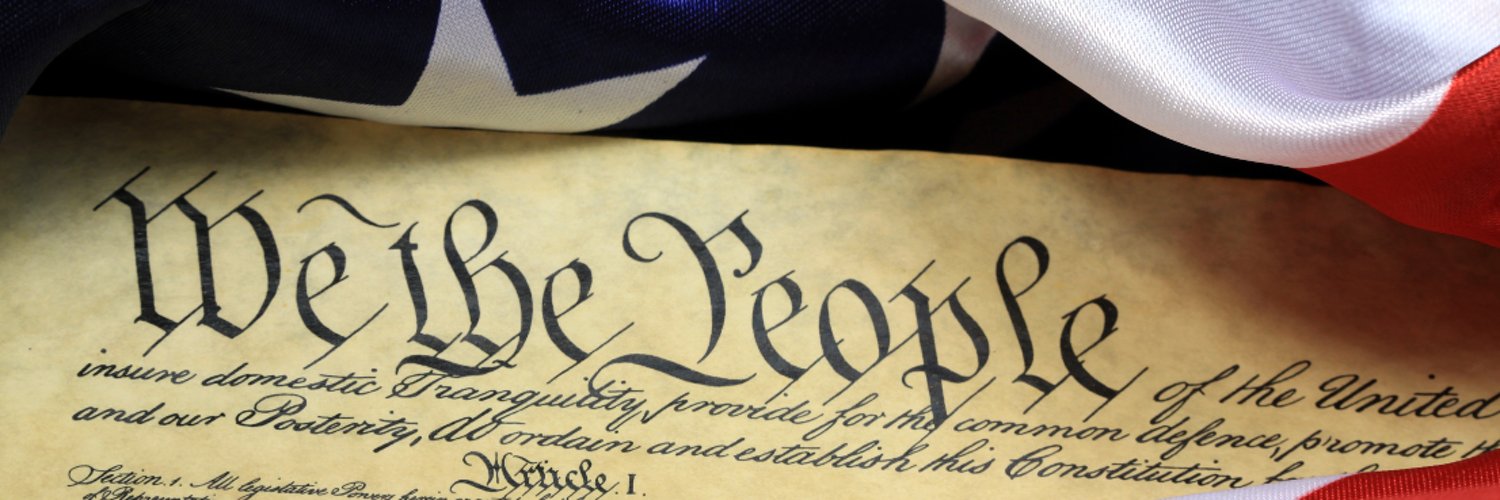 We the People of the United
insure domestic Tranquility, provide for the common defence, promote
and our Posterity, do ordain and establish this Constitution
Article. I.
Section. 1. All legislative Powers herein
of